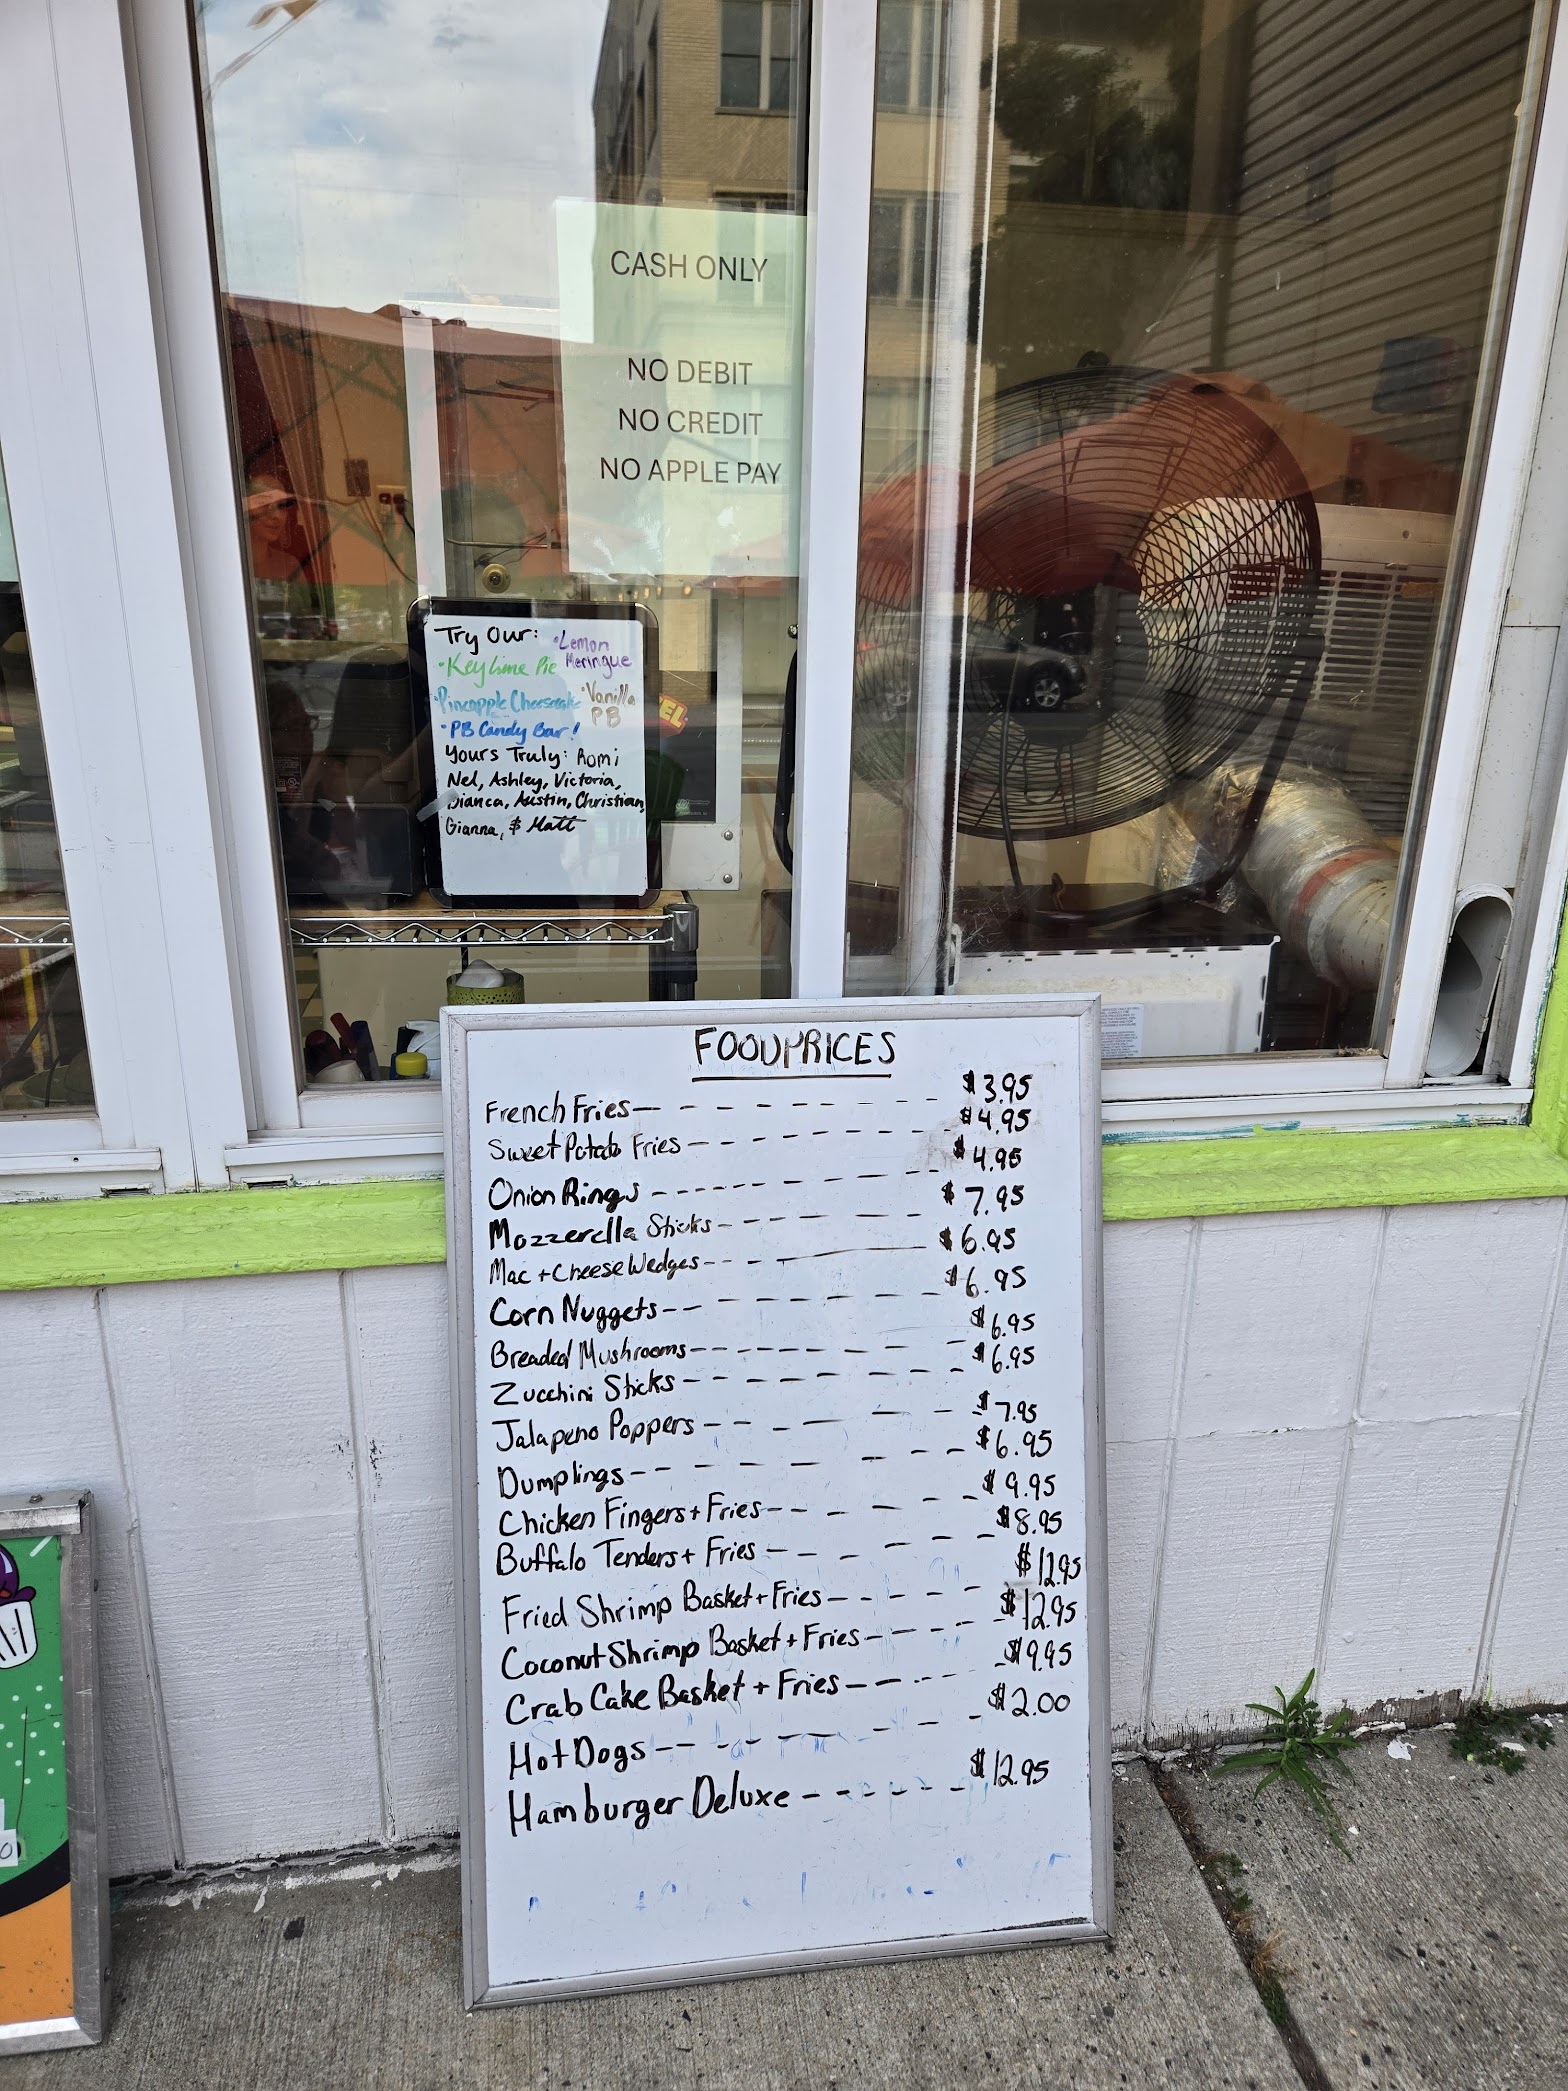 CASH ONLY
NO DEBIT
NO CREDIT
NO APPLE PAY
Try Our: • Lemon Meringue
• Key lime Pie
• Pineapple Cheesecake • Vanilla PB
• PB Candy Bar!
Yours Truly: Romi
Nel, Ashley, Victoria,
Bianca, Austin, Christian,
Gianna, $ Matt
FOOD PRICES
French Fries $3.95
Sweet Potato Fries $4.95
Onion Rings $4.95
Mozzerella Sticks $7.95
Mac + Cheese Wedges $6.95
Corn Nuggets $6.95
Breaded Mushrooms $6.95
Zucchini Sticks $6.95
Jalapeno Poppers $7.95
Dumplings $6.95
Chicken Fingers + Fries $9.95
Buffalo Tenders + Fries $8.95
Fried Shrimp Basket + Fries $12.95
Coconut Shrimp Basket + Fries $12.95
Crab Cake Basket + Fries $9.95
Hot Dogs $2.00
Hamburger Deluxe $12.95